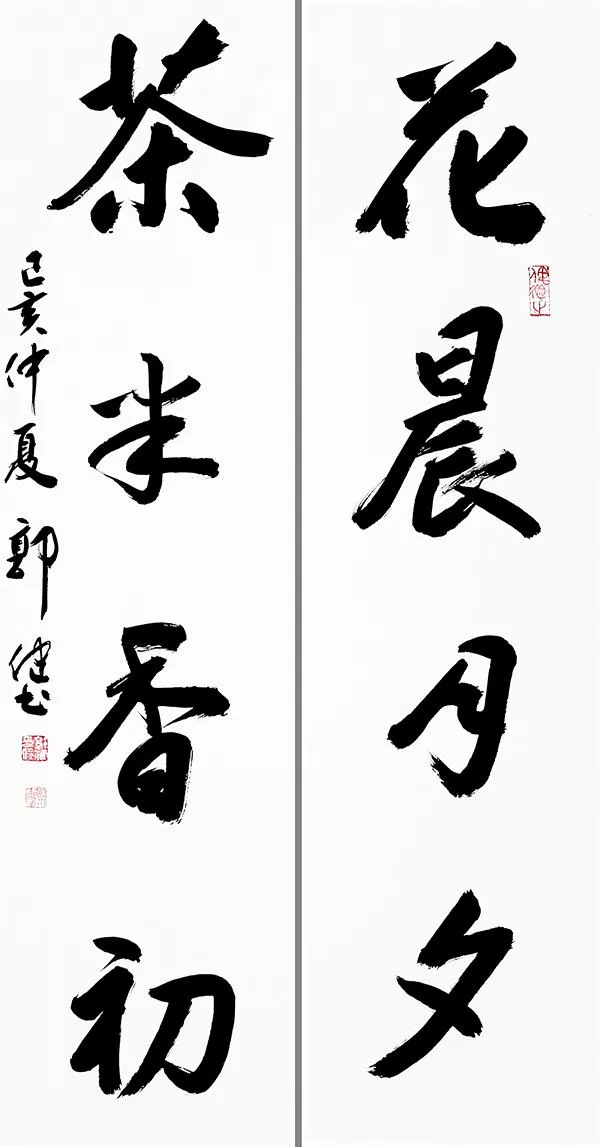 花晨月夕
茶半香初
己亥仲夏郭健书